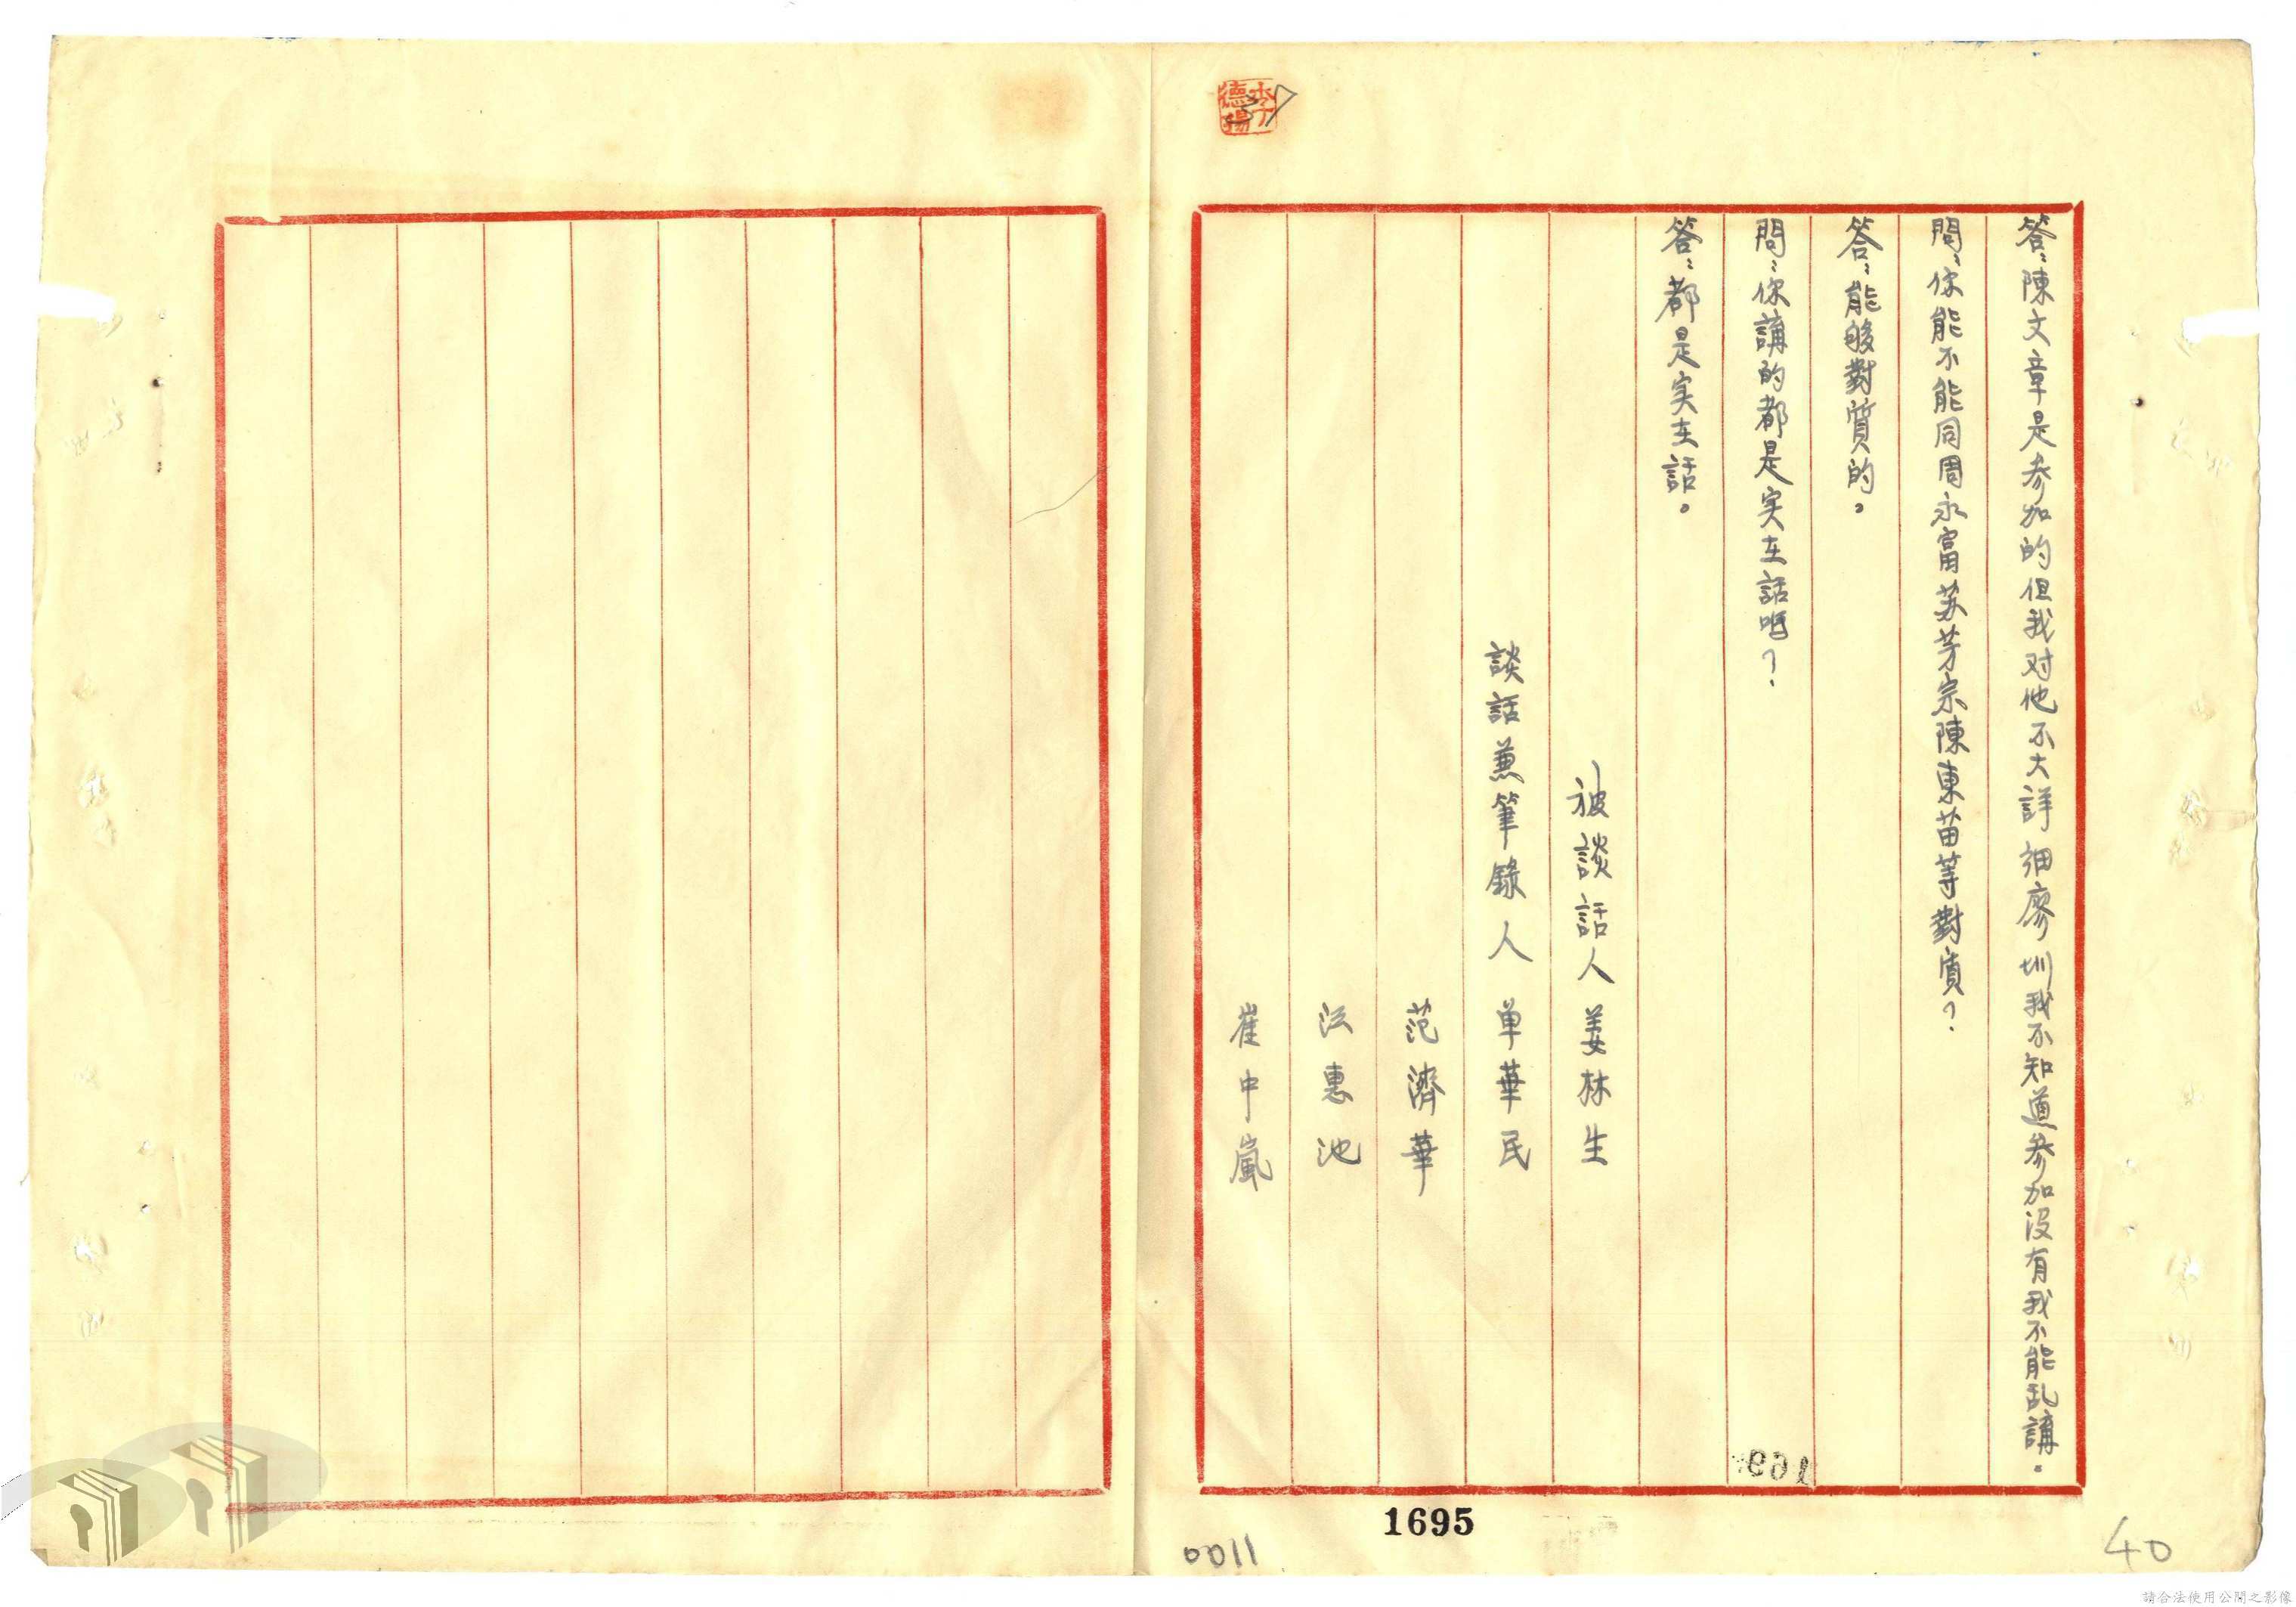 答：陳文章是参加的但我对他不大詳細廖圳我不知道参加没有我不能乱講。
問：你能不能同周永富苏芳宗陳東苗等對質？
答：能够對質的。
問：你講的都是实在話嗎？
答：都是实在話。
被談話人 姜林生
談話兼筆錄人 单華民
范濟華
江惠池
崔中嵐
37
1695
0011
40
請合法使用公開之影像